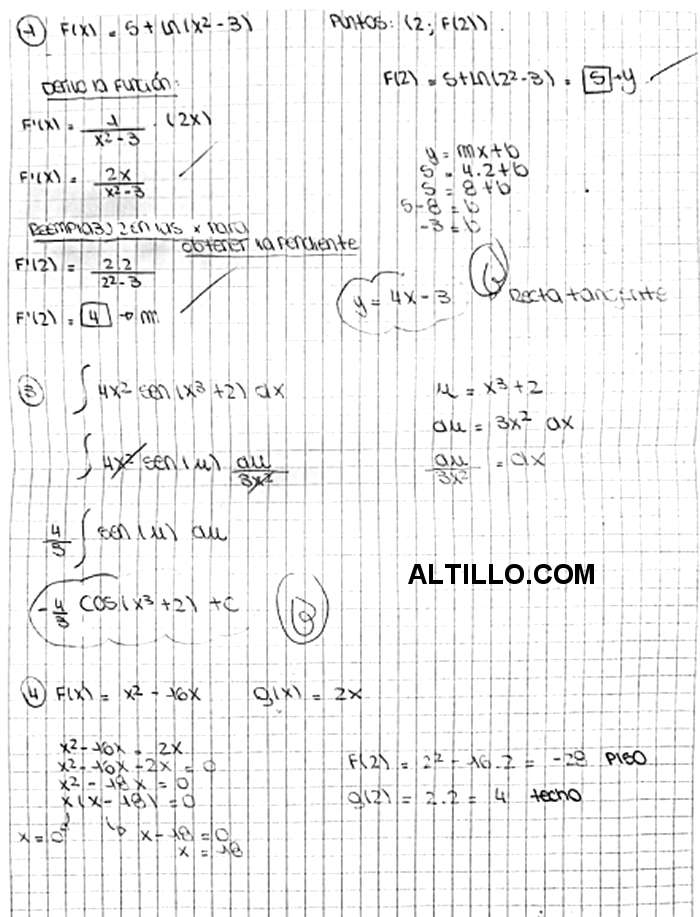 1) F(x) = 5 + ln(x² - 3)
Puntos: (2; F(2)).
Derivo la función:
F(2) = 5 + ln(2² - 3) = 5 → y
F'(x) = 1/(x² - 3) · (2x)
F'(x) = 2x/(x² - 3)
y = mx + b
5 = 4.2 + b
5 = 8 + b
5 - 8 = b
-3 = b
Reemplazo en las x para
obtener la pendiente
F'(2) = 2.2/(2² - 3)
F'(2) = 4 → m
y = 4x - 3
Recta tangente
3) ∫ 4x² sen(x³ + 2) dx
u = x³ + 2
du = 3x² dx
du/3x² = dx
∫ 4x² sen(u) du/3x²
4/3 ∫ sen(u) du
ALTILLO.COM
-4/3 cos(x³ + 2) + c
4) F(x) = x² - 16x
g(x) = 2x
x² - 16x = 2x
x² - 16x - 2x = 0
x² - 18x = 0
x(x - 18) = 0
x = 0
x - 18 = 0
x = 18
F(2) = 2² - 16.2 = -28 PISO
g(2) = 2.2 = 4 techo